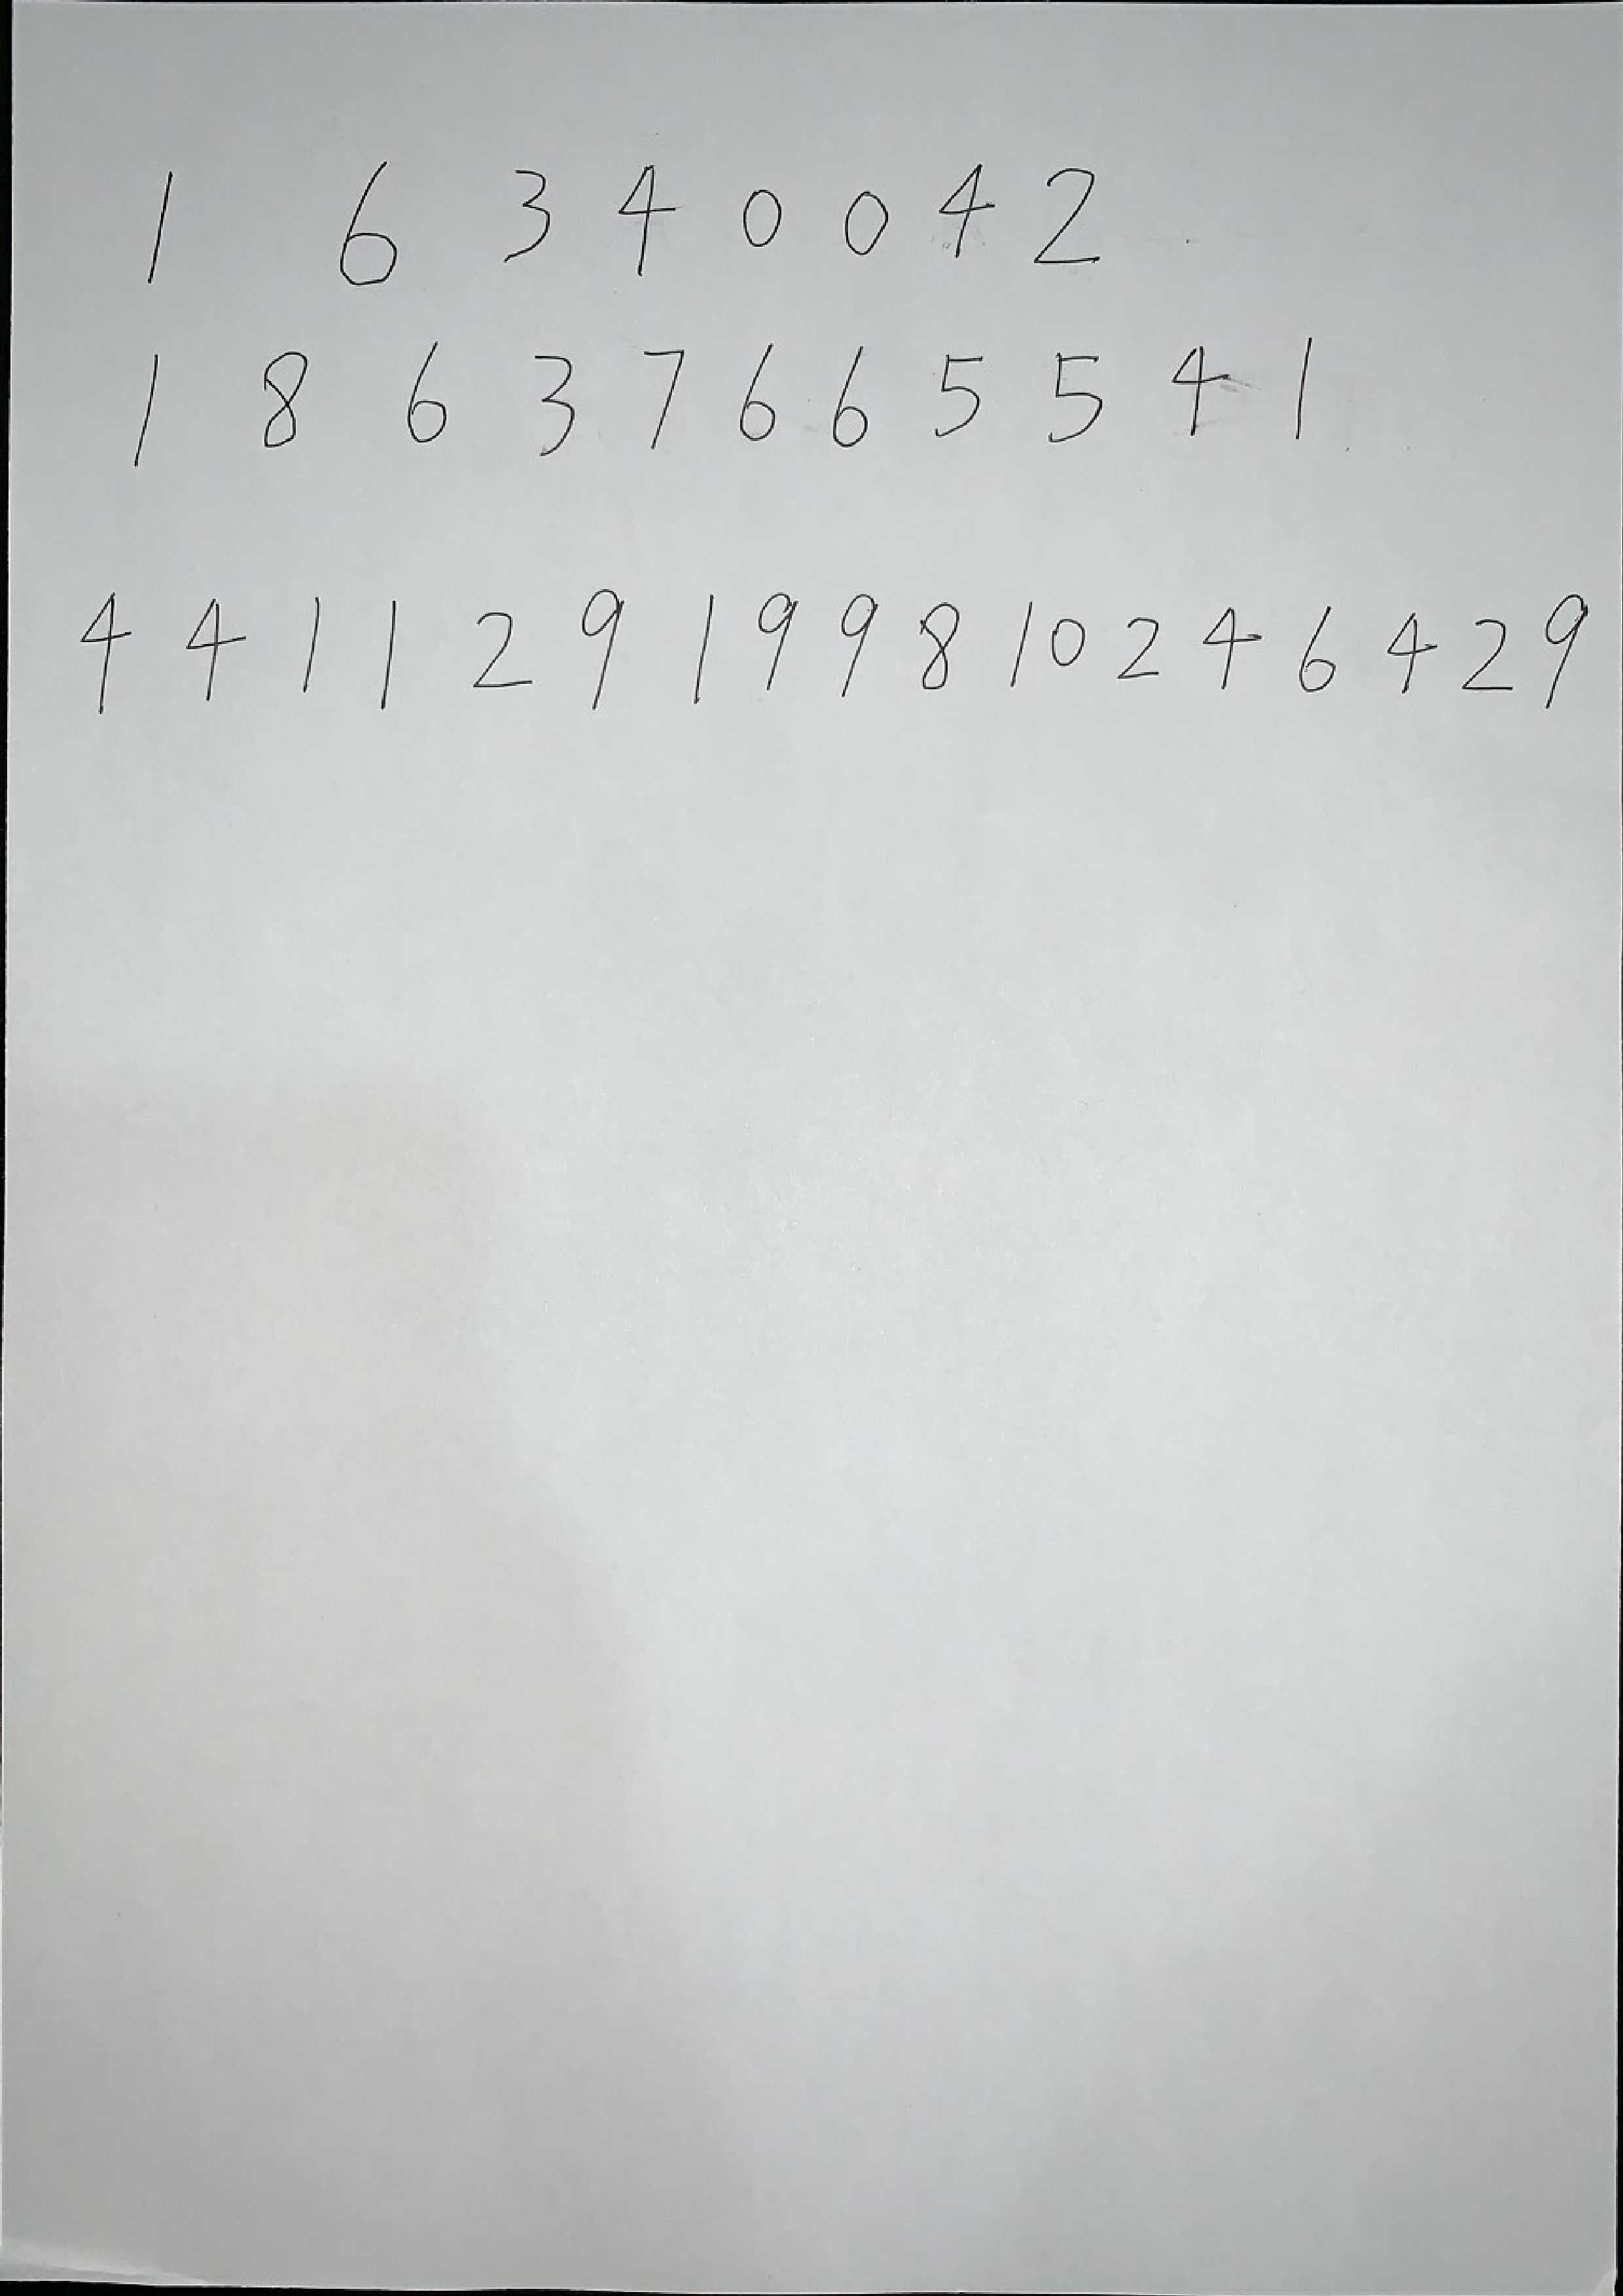 1 6 3 4 0 0 4 2
1 8 6 3 7 6 6 5 5 4 1
4 4 1 1 2 9 1 9 9 8 1 0 2 4 6 4 2 9